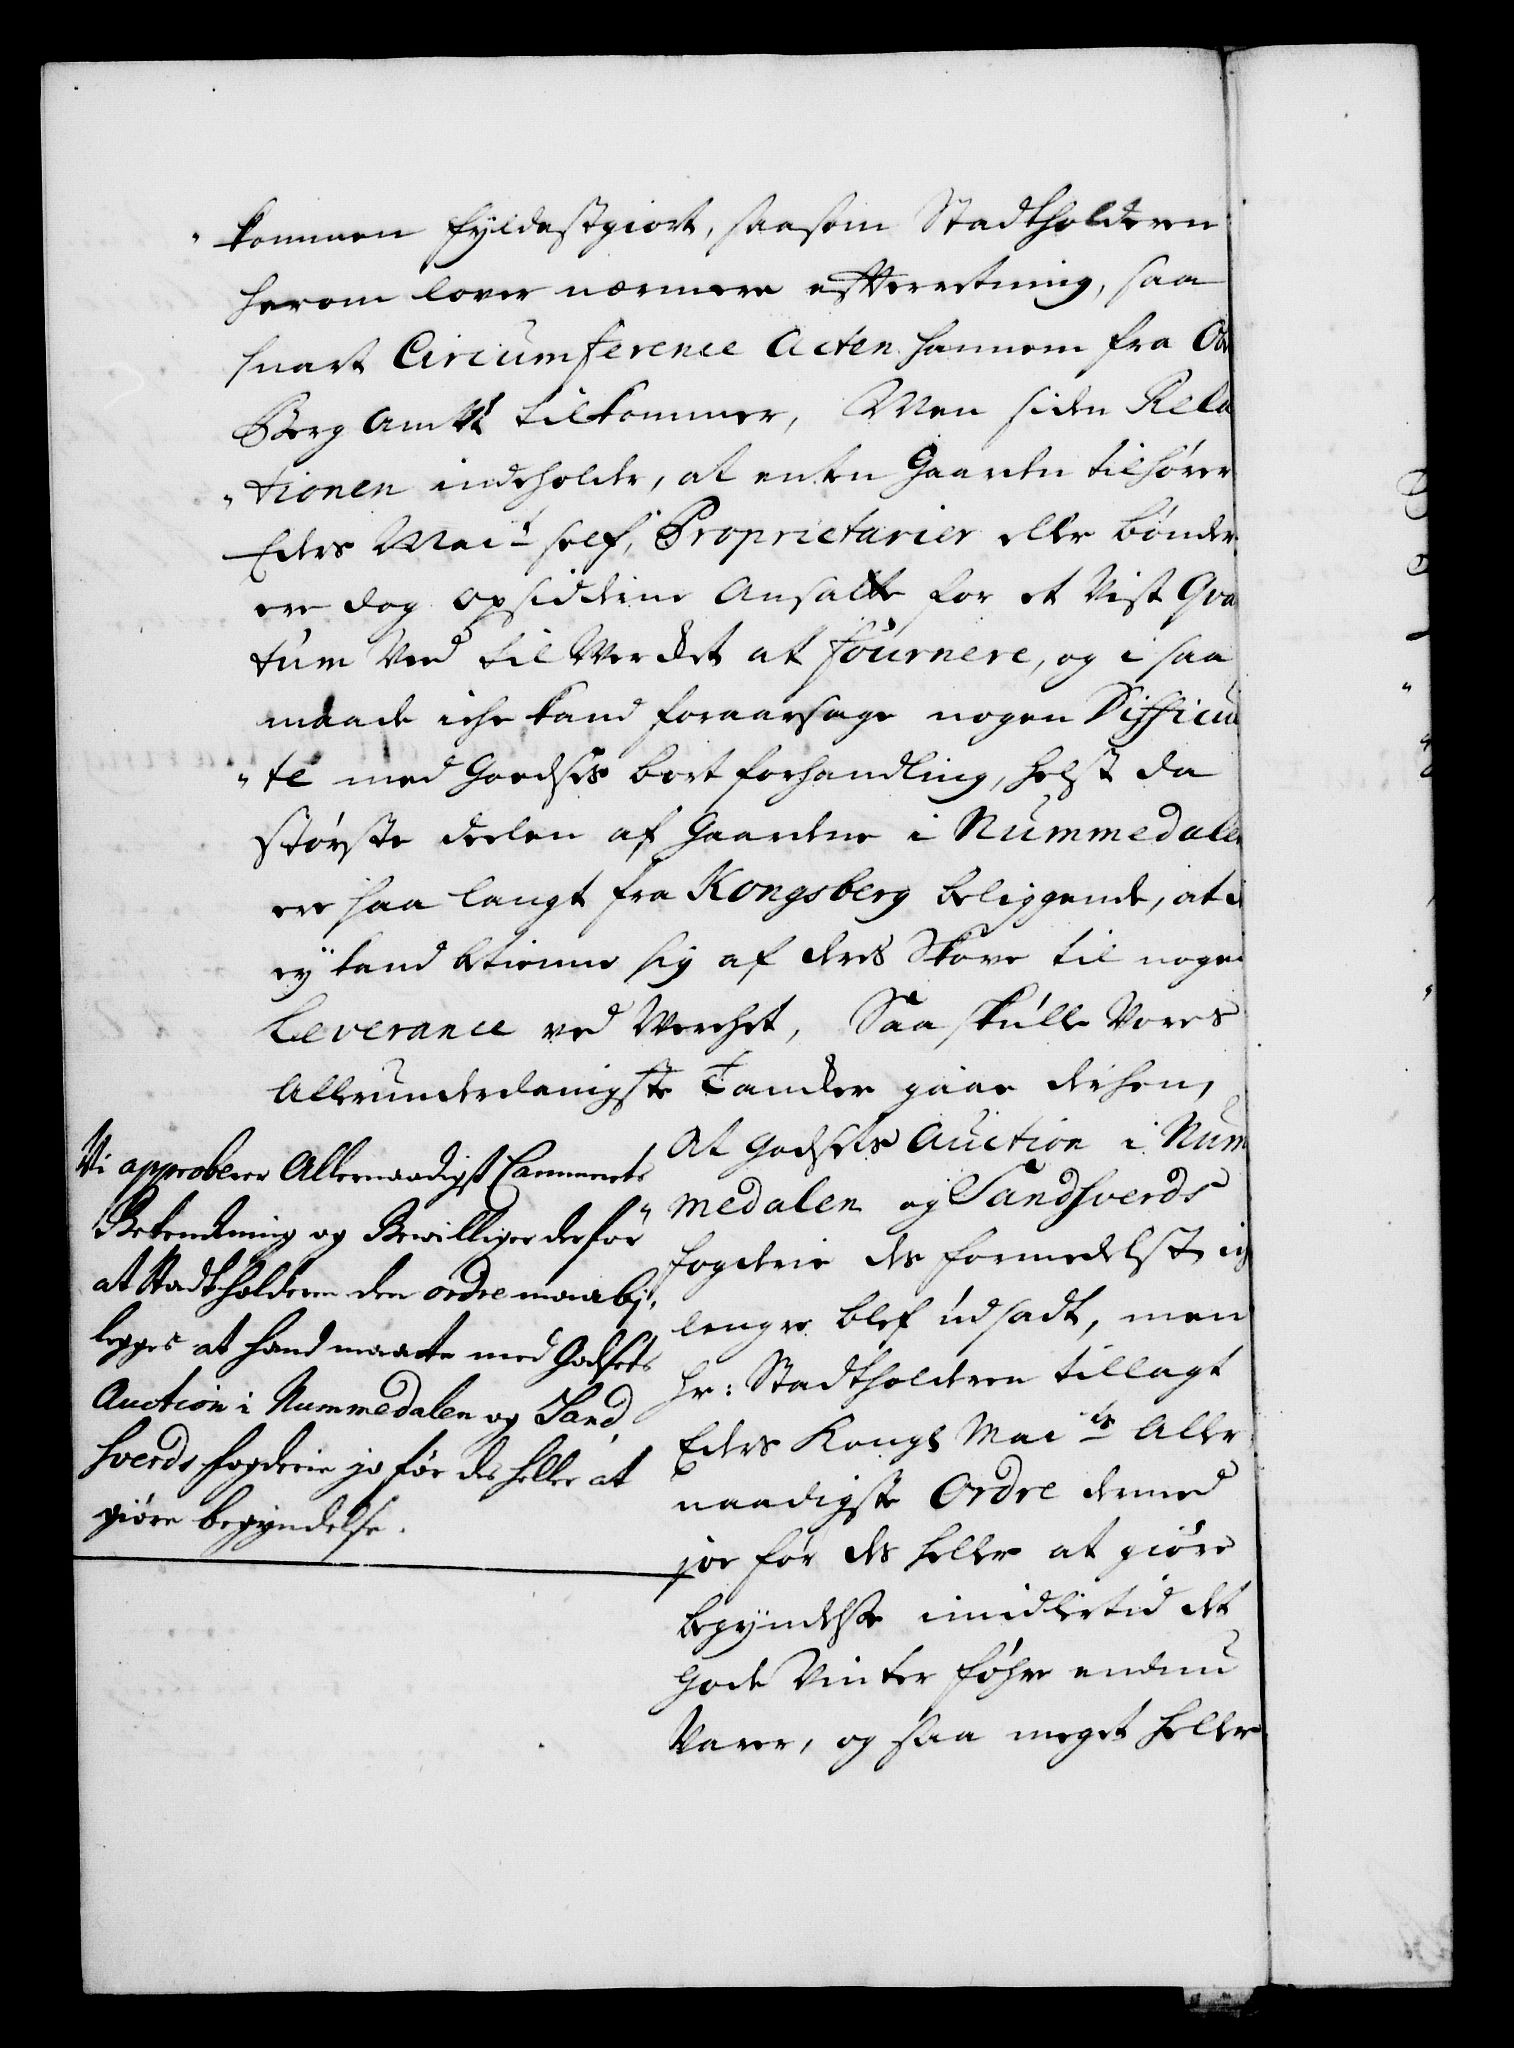 "kommen fyldestgiort, saasom Stadtholderen
herom lover nærmere efterretning, saa
snart Circumference Acten hannem fra Ober
Berg Amtet tilkommer, Men siden Rela
"tionen indeholder, at enten Gaarden tilhører
Eders Mait self, Proprietarier eller bønder
ere dog opsidderne Ansatte for et Vist Qvan
tum Ved til Werket at fournere, og i saa
maade iche kand foraarsage nogen Difficul
"té med Goedsets bortforhandling, helst da
største deelen af Gaardene i Nummedalen
ere saa langt fra Kongsberg beliggende, at de
ey kand betienne sig af deres Skove til nogen
Leverance ved Werchet, Saa skulle Vores
Allerunderdanigste Tancker gaae derhen,
At Godsets Auction i Num
medalen og Sandsverds
fogderie des formedelst ich
lengre blef udsadt, men
hr: Stadtholderen tillagt
Eders Kongl Maits Aller
naadigste Ordre dermed
joe før des heller at giøre
begyndelse imidlertid det
Gode Vinter føhre endnu
Varer, og saa meget heller
Vi approberer Allernaadigst Cammerets
Betenckning og Bewilliger derfor
at Stadtholderen den ordre maa bij,
legges at hand maatte med Godsets
Auction i Nummedalen og Sand,
sverds fogderie jo før des heller at
giøre begyndelse.